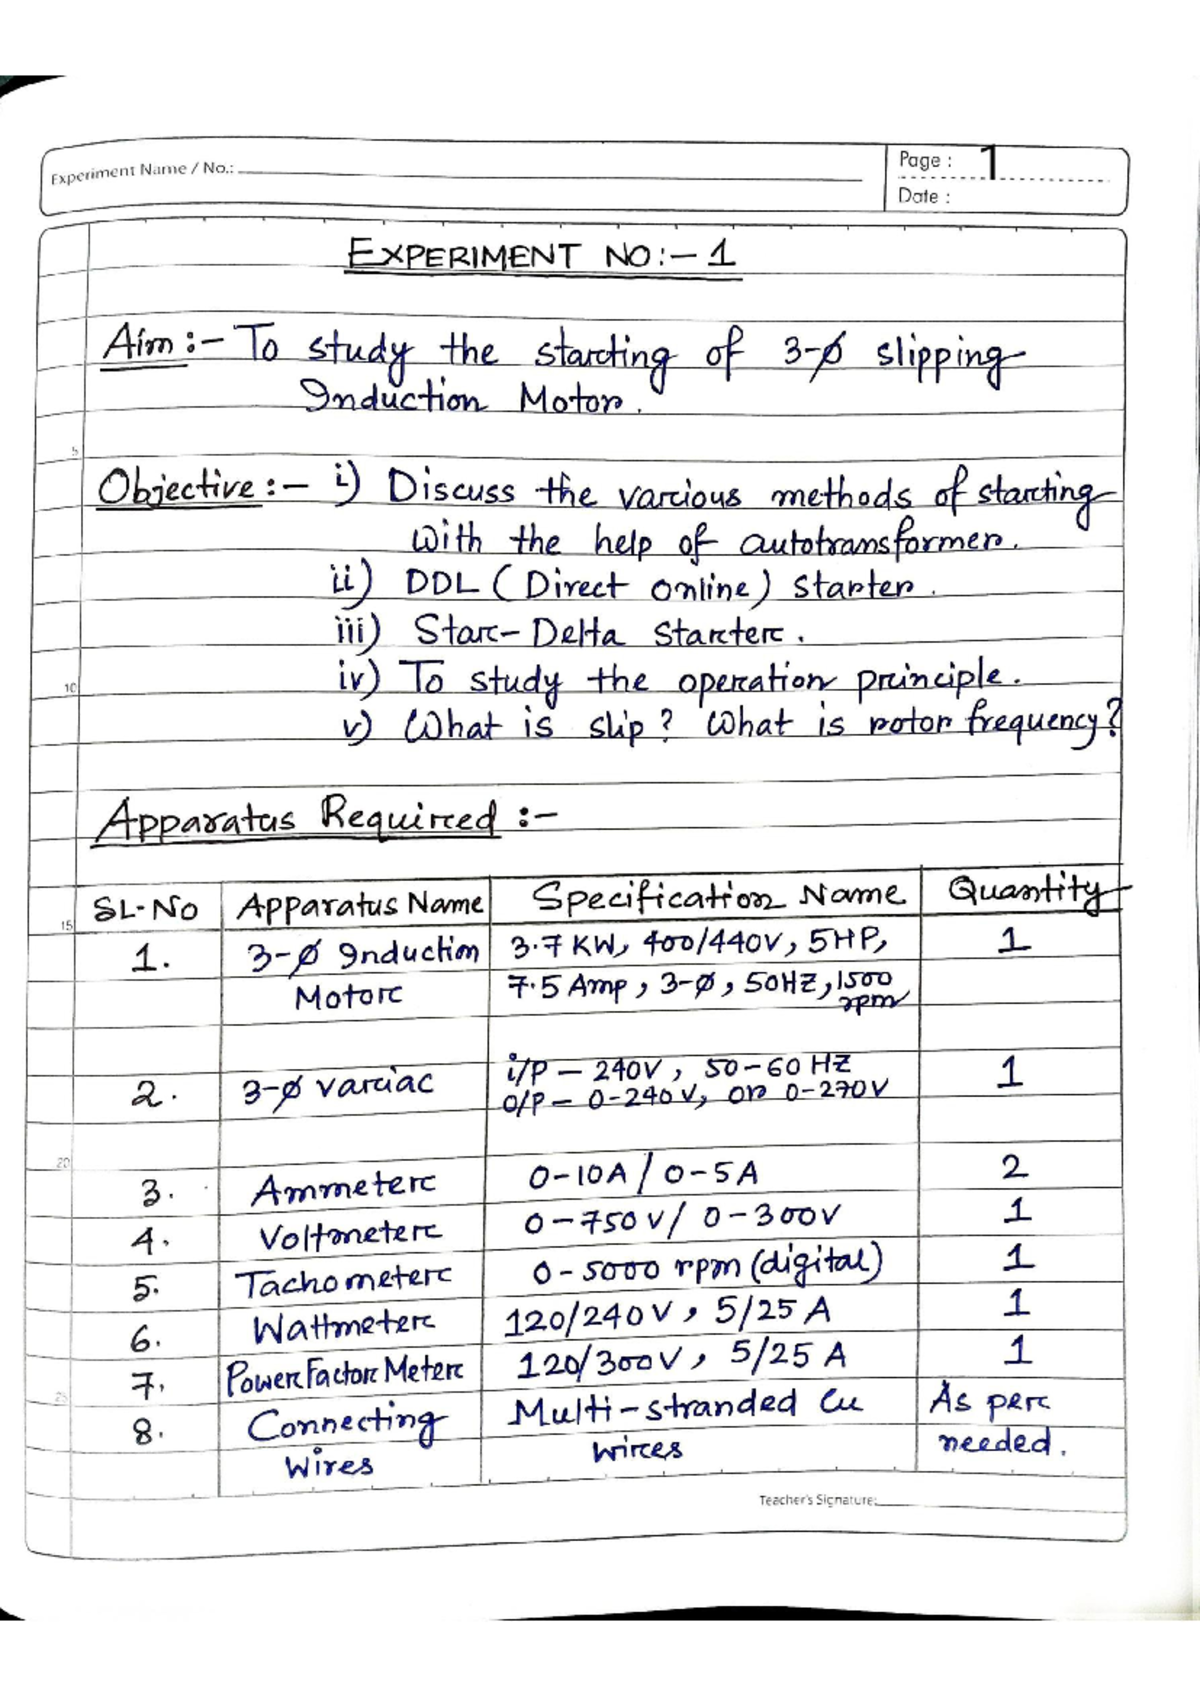 Experiment Name / No.:
Page : 1
Date :
EXPERIMENT NO:- 1
Aim :- To study the starting of 3-ø slipping
Induction Motor.
5
Objective :- i) Discuss the various methods of starting
with the help of autotransformer.
ii) DDL (Direct online) starter.
iii) Star-Delta starter.
iv) To study the operation principle.
v) What is slip? What is rotor frequency?
10
Apparatus Required :-
SL.No Apparatus Name Specification Name Quantity
15
1. 3-ø Induction 3.7 KW, 400/440V, 5HP, 1
Motor 7.5 Amp, 3-ø, 50HZ, 1500
rpm
2. 3-ø variac i/P - 240V, 50-60 HZ 1
O/P - 0-240V, or 0-270V
20
3. Ammeter 0-10A / 0-5A 2
4. Voltmeter 0-750V/ 0-300V 1
5. Tachometer 0-5000 rpm (digital) 1
6. Wattmeter 120/240V, 5/25 A 1
7. Power Factor Meter 120/300V, 5/25 A 1
25
8. Connecting Multi-stranded Cu As per
Wires wires needed.
Teacher's Signature: